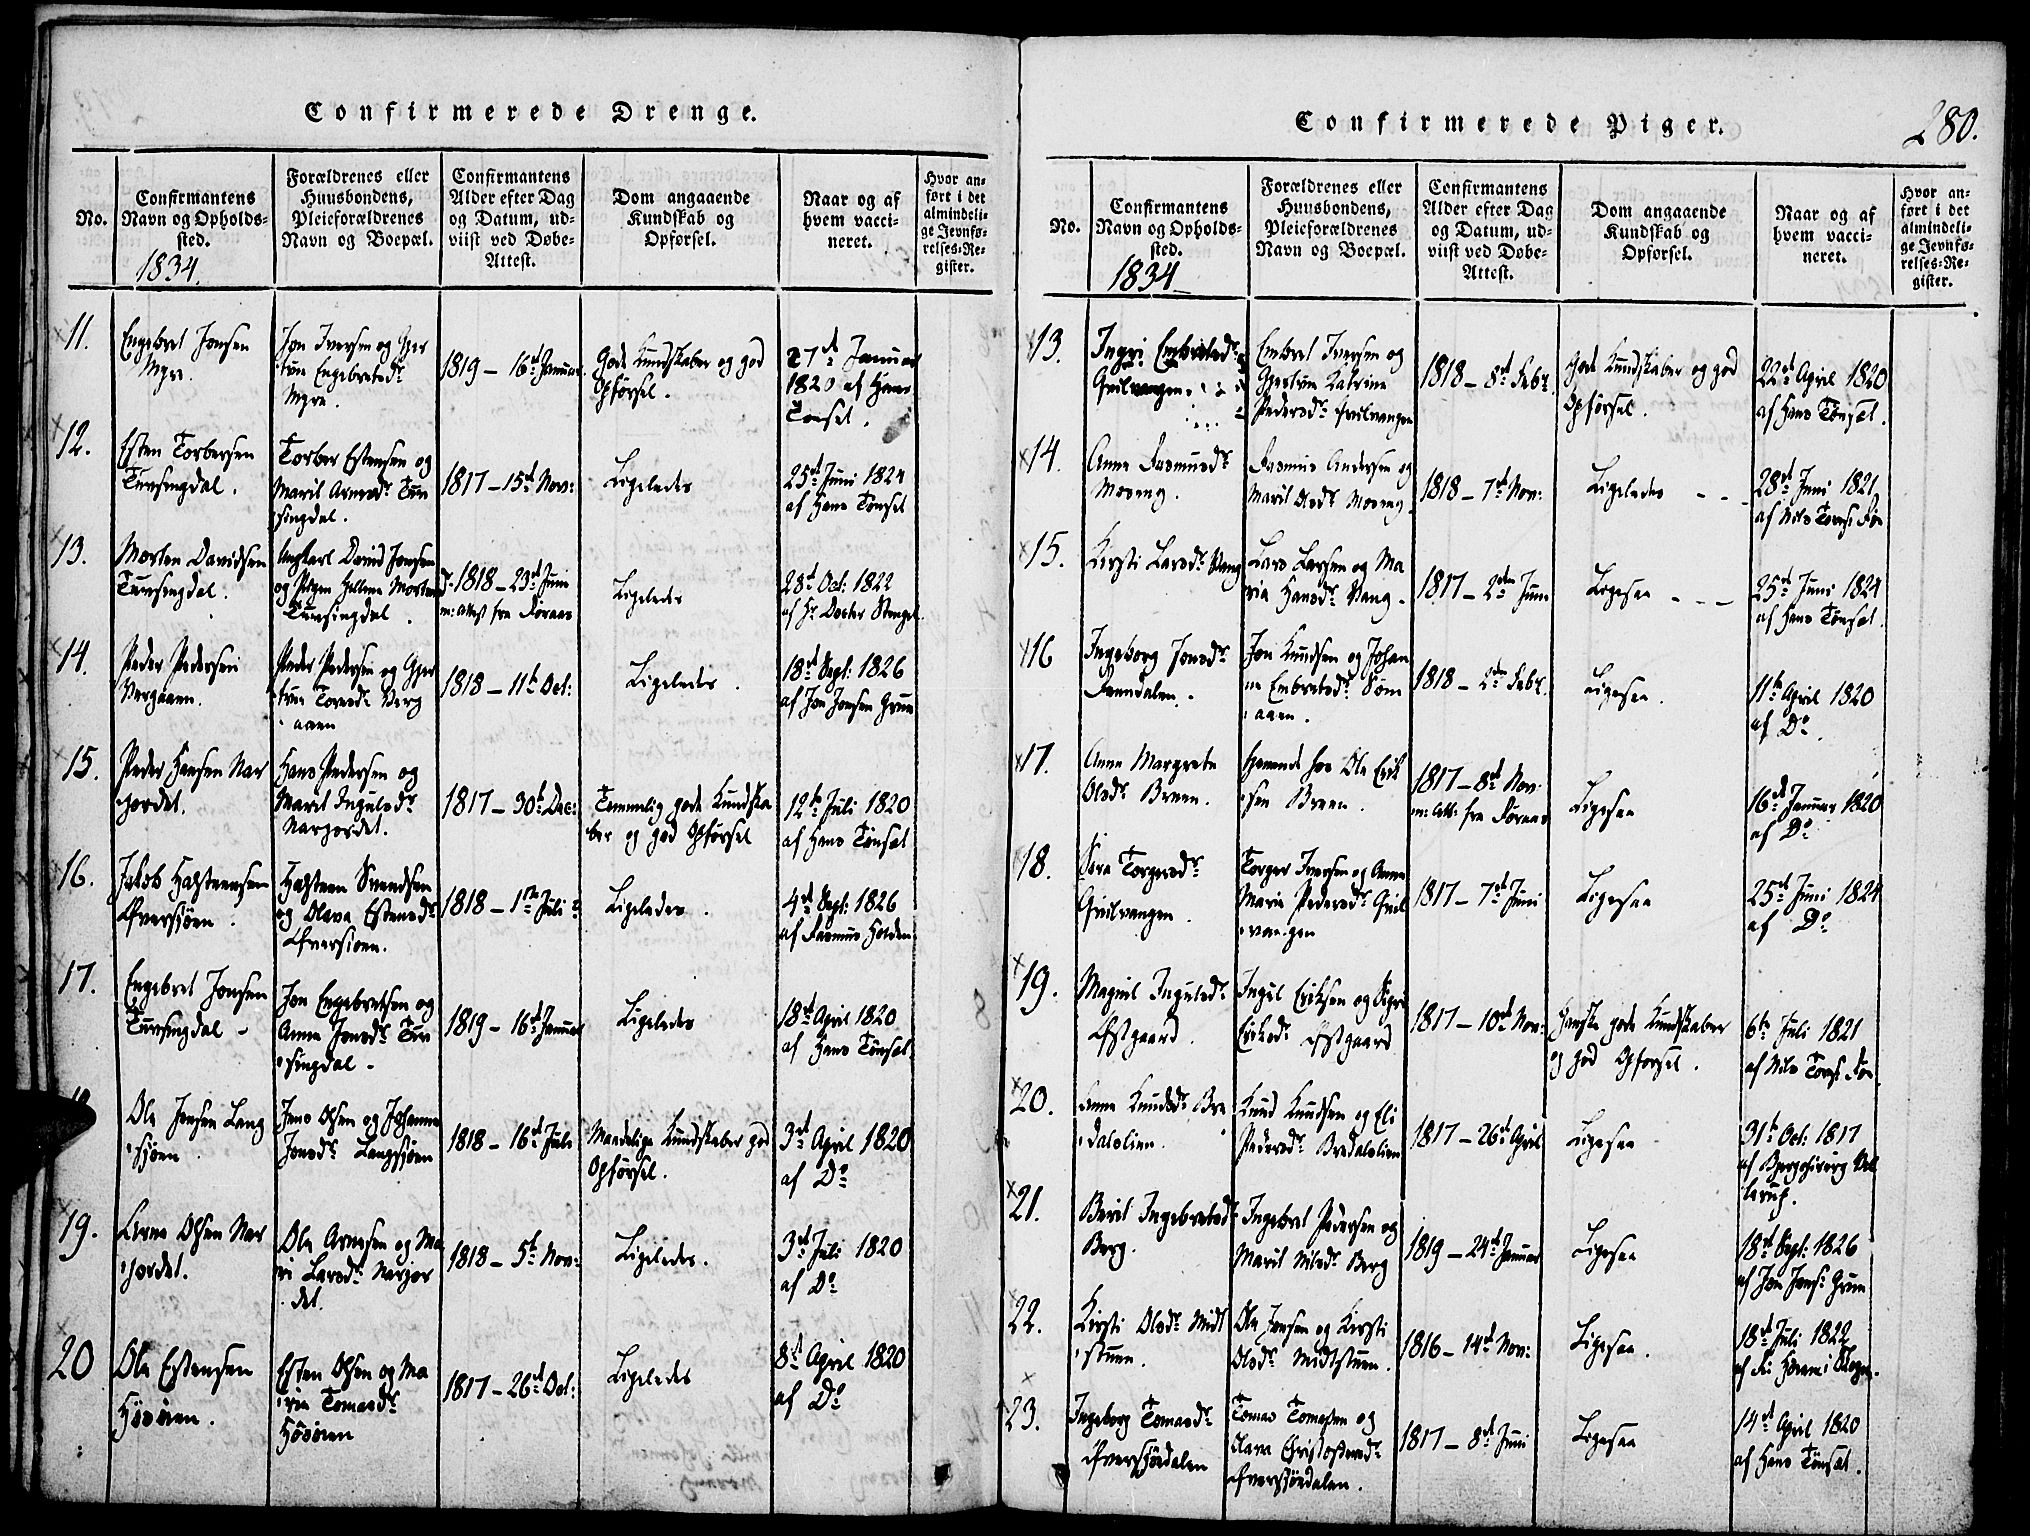 Confirmerede Drenge.
No.
Confirmantens
Navn og Opholds-
sted.
1834.
Forældrenes eller
Huusbondens,
Pleieforældrenes
Navn og Boepæl.
Confirmantens
Alder efter Dag
og Datum, ud-
viist ved Døbe-
Attest.
Dom angaaende
Kundskab og
Opførsel.
Naar og af
hvem vacci-
neret.
Hvor an-
ført i det
almindeli-
ge Jevnfø-
relses-Re-
gister.
11.
Engebret Jonsen
Myre.
Jon Iversen og Gjer
true Engebretsdr
Myre.
1819 – 16de Januar.
Gode Kundskaber og god
Opførsel.
27de Januar
1820 af Hans
Tønset.
12.
Esten Torbersen
Tunsingdal.
Torber Estensen og
Marit Arnesdr Tun
singdal.
1817 – 15de Nov:
Ligeledes
25de Juni 1824
af Hans Tønset
13.
Morten Davidsen
Tunsingdal.
Ungkarl David Jonsen
og Pigen Hellena Mortensd:
Tunsingdal.
1818 – 23de Juni
m: Attest fra Foraas
Ligeledes
28de Oct: 1822
af Hr Docter Stengel
14.
Peder Pedersen
Bergaaen.
Peder Pedersen og Gjer
true Toresdr Berg
aaen
1818 – 11te Oct:
Ligeledes.
18de Sept: 1826
af Jon Jonsen Gruue
15.
Peder Hansen Nar
jordet.
Hans Pedersen og
Marit Ingulsdr
Narjordet.
1817 – 30te Dec:
Temmelig gode Kundska
ber og god Opførsel
12te Juli 1820
af Hans Tønset
16.
Jakob Halsteensen
Øfversjøen.
Halsteen Svendsen
og Olava Estensdr
Øfversjøen.
1818 – 1ste Juli
Ligeledes.
4de Sept: 1826
af Rasmus Holden
17.
Engebret Jonsen
Tunsingdal –
Jon Engebretsen og
Anne Jonsdr Tun
singdal –
1819 – 16de Januar
Ligeledes
18de April 1820
af Hans Tønset.
Ole Jensen Lang
sjøen
Jens Olsen og Johanne
Jonsdr Langsjøen
1818 – 16de Juli
Maadelige Kundskaber god
Opførsel.
3de April 1820
af Do
19.
Arne Olsen Nar
jordet.
Ole Arnesen og Ma
ri Larsdr Narjor
det.
1818 – 5te Nov:
Ligeledes.
3de Juli 1820
af Do
20
Ole Estensen
Høsøien.
Esten Olsen og Ma
ria Tomasdr
Høsøien
1817 – 26de Oct:
Ligeledes
8de April 1820
af Do
Confirmerede Piger.
280.
No.
Confirmantens
Navn og Opholds-
sted.
1834
Forældrenes eller
Huusbondens,
Pleieforældrenes
Navn og Boepæl.
Confirmantens
Alder efter Dag
og Datum, ud-
viist ved Døbe-
Attest.
Dom angaaende
Kundskab og
Opførsel.
Naar og af
hvem vacci-
neret.
Hvor an-
ført i det
almindeli-
ge Jevnfø-
relses-Re-
gister.
13.
Ingri Embretsdr
Qvilvangen.
Embret Iversen og
Gjertrue Katrine
Pedersdr Qvilvangen
1818 – 8de Febr.
Gode Kundskaber og god
Opførsel.
22de April 1820
af Hans Tønset.
14.
Anne Rasmusdr
Moseng.
Rasmus Andersen og
Marit Olsdr Moseng.
1818 – 7de Nov:
Ligeledes – –
28de Juni 1821
af Nils Tomes: Fos
15.
Kirsti Larsdr Vang
Lars Larsen og Ma
ria Hansdr Vang –
1817 – 2den Juni
Ligesaa – – –
25de Juni 1824
af Hans Tønset.
16
Ingeborg Jonsdr
Lundalen.
Jon Knudsen og Johan
ne Embretsdr Tøn
aaen.
1818 – 2den Febr.
Ligesaa.
11te April 1820
af Do.
17.
Anne Margrete
Olsdr Breen.
Hjemme hos Ole Erik
sen Breen.
1817 – 8de Nov.
m: Att: fra Foraas
Ligesaa
16de Januar 1820
af Do
18.
Sira Torgersdr
Qvilvangen.
Torger Iversen og Anne
Marie Pedersdr Qvil
vangen
1817 – 7de Juni
Ligesaa
25de Juni 1824
af Do
19.
Magnil Ingulsdr
Østgaard.
Ingul Eriksen og Sigri
Eriksdr Østgaard
1817 – 10de Nov:
Ganske gode Kundskaber
og god Opførsel.
6te Juli 1821
af Nils Toms: Fos
20.
Anne Knudsdr Bre
dalslien.
Knud Knudsen og Eli
Pedersdr Bredalslien
1817 – 26de April
Ligesaa
31te Oct: 1817
af Bergchirurg
21.
Berit Ingebretsdr
Berg.
Ingebret Pedersen og
Marit Nilsdr Berg
1819 – 24de Januar
Ligesaa
18de Sept: 1826
af Jon Jons: Gruue
22.
Kirsti Olsdr Midt
stuen.
Ole Jensen og Kirsti
Olsdr Midtstuen.
1816 – 14de Nov:
Ligesaa.
18de Juli 1822
23.
Ingeborg Tomasdr
Øfversjødalen
Tomas Tomesen og
Olava Christophersdr
Øfversjødalen.
1817 – 8de Juni
Ligesaa
14de April 1820
af Hans Tønset.